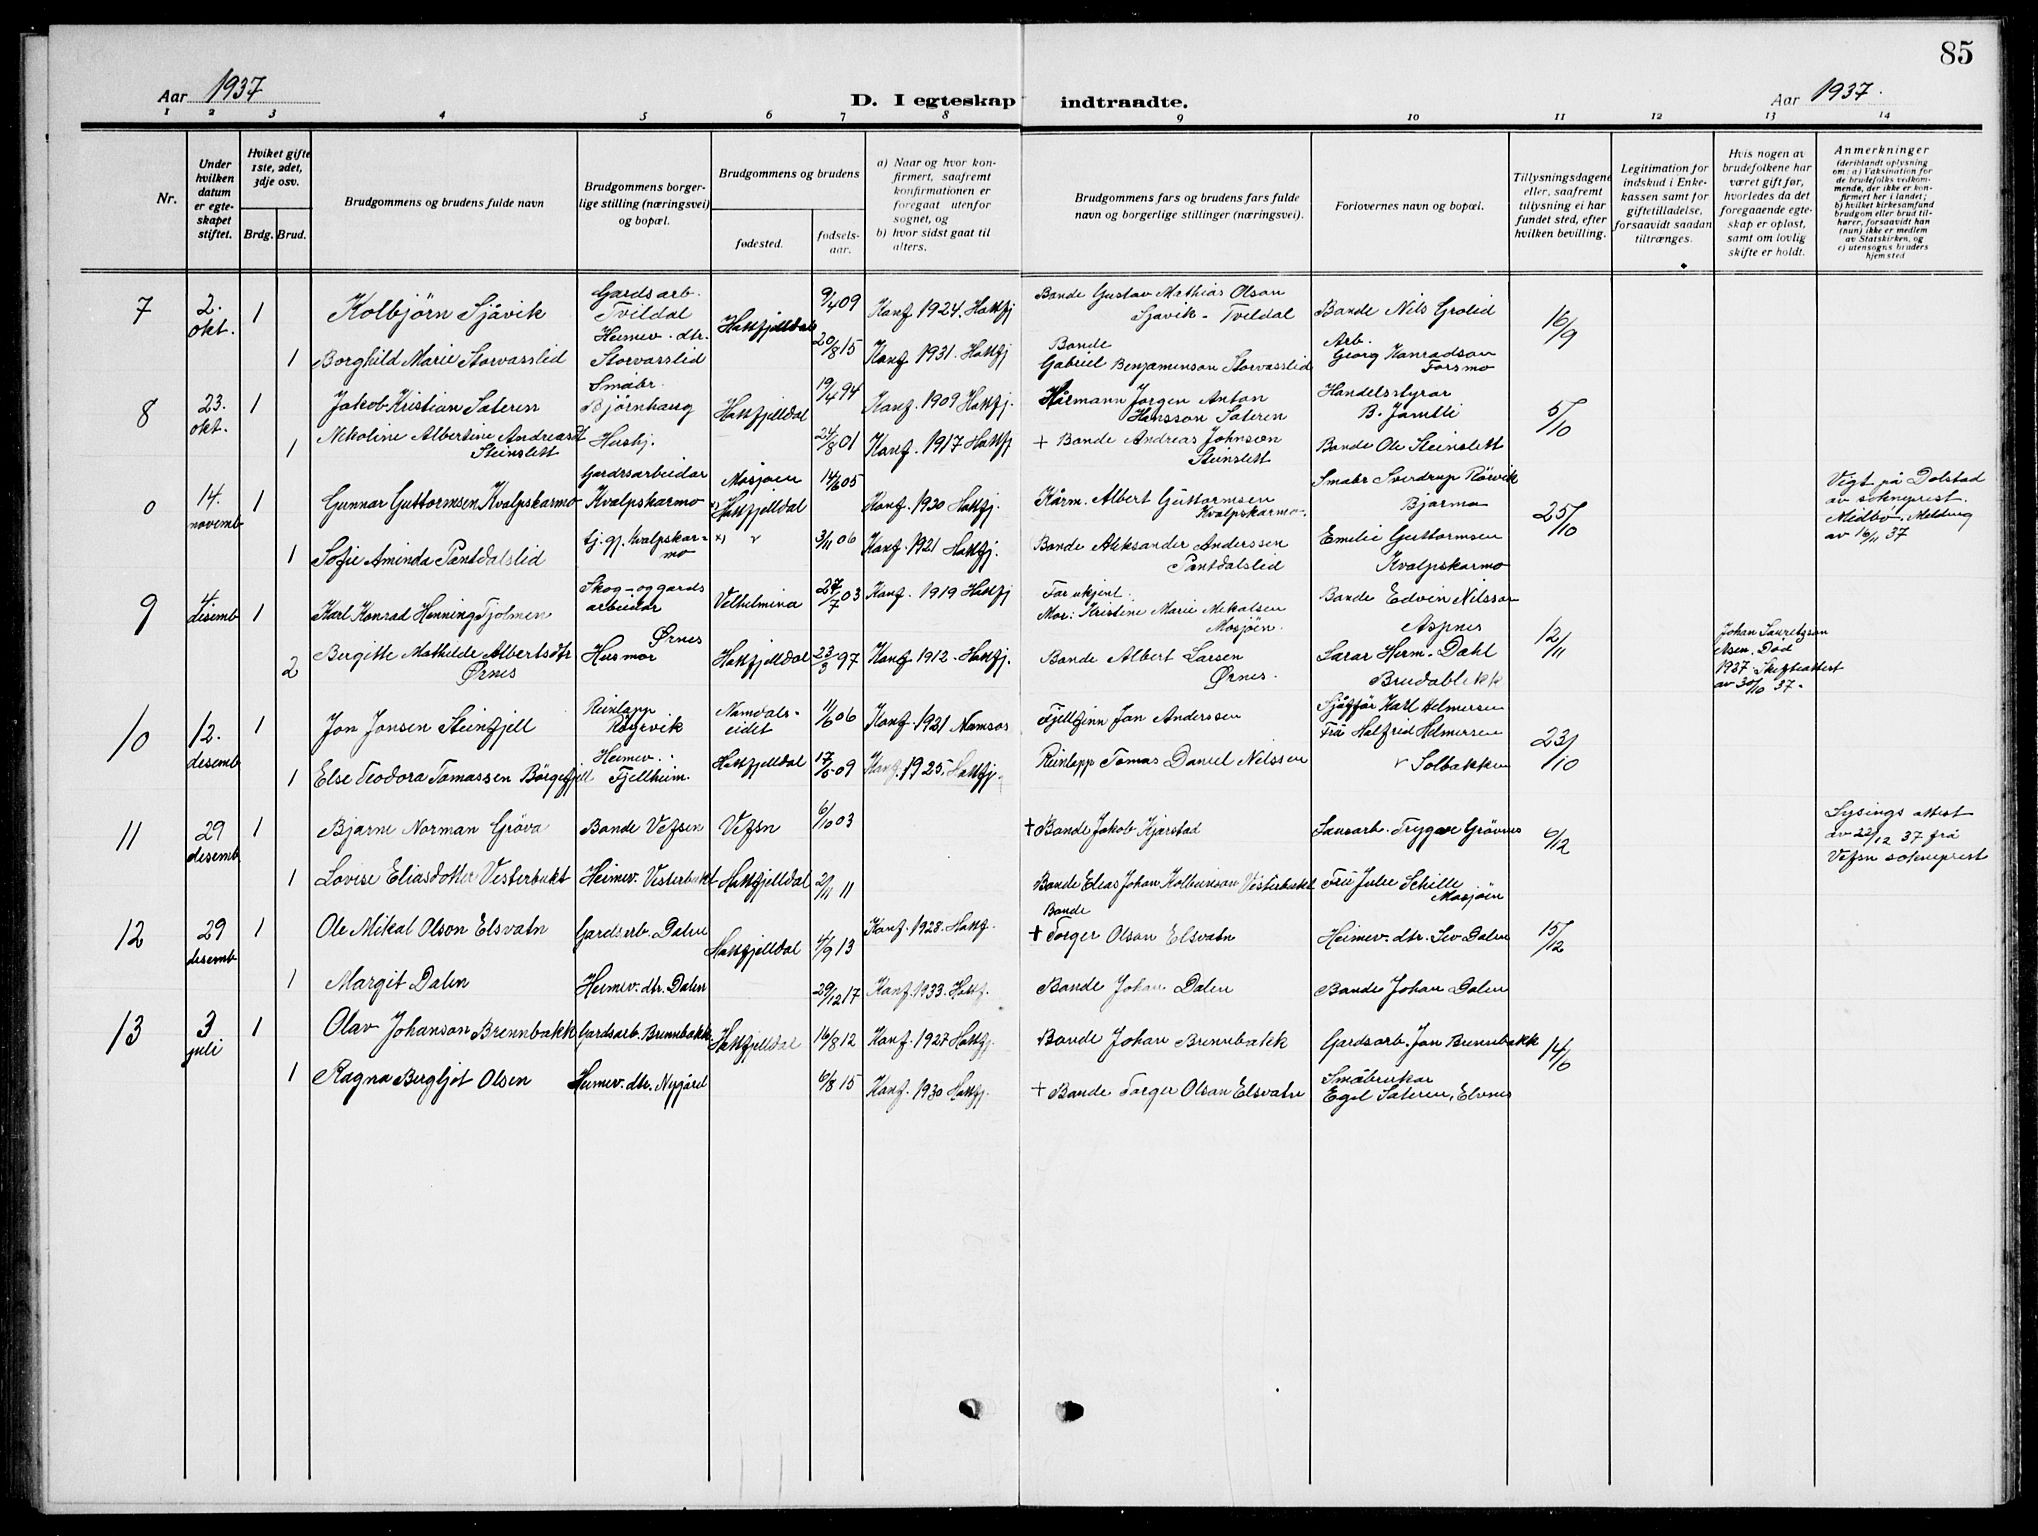 85
Aar 1937
D. I egteskap indtraadte.
Aar 1937.
1 2 3 4 5 6 7 8 9 10 11 12 13 14
Nr.
Under hvilken datum er egteskapet stiftet.
Hvilket gifte 1ste, 2det, 3dje osv.
Brdg. Brud.
Brudgommens og brudens fulde navn
Brudgommens borgerlige stilling (næringsvei) og bopæl.
Brudgommens og brudens
fødested.
fødselsaar.
a) Naar og hvor konfirmert, saafremt konfirmationen er foregaat utenfor sognet, og
b) hvor sidst gaat til alters.
Brudgommens fars og brudens fars fulde navn og borgerlige stillinger (næringsvei).
Forlovernes navn og bopæl.
Tillysningsdagene eller, saafremt tillysning ei har fundet sted, efter hvilken bevilling.
Legitimation for indskud i Enkekassen samt for giftetilladelse, forsaavidt saadan tiltrænges.
Hvis nogen av brudefolkene har været gift før, hvorledes da det foregaaende egteskap er opløst, samt om lovlig skifte er holdt.
Anmerkninger
(deriblandt oplysning om: a) Vaksination for de brudefolks vedkommende, der ikke er konfirmert her i landet; b) hvilket kirkesamfund brudgom eller brud tilhører, forsaavidt han (hun) ikke er medlem av Statskirken, og c) utensogns bruders hjemsted
7 2. okt. 1 Kolbjørn Sjåvik Gardsarb. Tvildal Hattfjelldal 9/4 09 Konf 1924. Hattfj Bonde Gustav Mathias Olson Sjåvik - Tvildal Bonde Nils Grolid 16/9
1 Borghild Marie Storvasslid Heimev. dtr. Storvasslid 20/8 15 Konf. 1931. Hattfj Bonde Gabriel Benjaminson Storvasslid Arb. Georg Konradson Forsmo
8 23. okt. 1 Jakob Kristian Sateren Småbr. Bjørnhaug Hattfjelldal 19/4 94 Konf. 1909 Hattfj. Kårmann Jørgen Anton Hansson Sateren Handelsstyrar B. Jamtli 5/10
1 Nikoline Albertine Andreasdt Steinslett Hushj. 24/8 01 Konf. 1917 Hattfj + Bonde Andreas Johnson Steinslett Bonde Ole Steinslett
0 14. novemb 1 Gunnar Guttormsen Kvalpskarmo Gardsarbeidar Kvalpskarmo Mosjøen x) Hattfjelldal 14/6 05 Konf. 1920 Hattfj. Kårm. Albert Guttormsen Kvalpskarmo. Småbr Sverdrup Rörvik Bjørmo 25/10 Vigt på Dolstad av sokneprest. Midbø. Melding av 16/11 37
1 Sofie Aminda Pantdalslid tj. gj. Kvalpskarmo x) " 3/11 06 Konf. 1921 Hattfj. Bonde Aleksander Anderssen Pantdalslid Emilie Guttormsen Kvalpskarmo
9 4 disemb 1 Karl Konrad Henning Tjolmen Skog- og gards arbeidar Ørnes Vilhelmina 27/7 03 Konf. 1919 Hattfj Far ukjent. Mor: Kristine Marie Mikalsen Mosjöen. Bonde Edvin Nilsson Aspnes 12/11
2 Bergitte Mathilde Albertsdtr Ørnes Husmor Hattfjelldal 23/3 97 Konf 1912. Hattfj. Bonde Albert Larsen Ørnes. Lærar Herm. Dahl Brudablikk Johan Lauritzson Død 1927. Skifteattest av 30/10 37.
10 12. desemb 1 Jon Jonsen Steinfjell Reinlapp Røyrvik Namdalseidet 11/6 06 Konf. 1921 Namsos Fjellfinn Jon Anderssen Karl Helmersen Frü Halfrid Helmersen 23/10
1 Else Teodora Tomassen Börgefjell Heimev. Fjellheim. Hattfjelldal 17/5 09 Konf. 1925. Hattfj. Reinlapp Tomas Daniel Nilssen Solbakken
11 29 disemb 1 Bjarne Norman Gröva Bonde Vefsen Vefsn 6/10 03 + Bonde Jakob Kjærstad Trygve Grövnes 6/12 Lysings attest av 22/12 37 frå Vefsn sokneprest
1 Lovise Eliasdotter Vesterbukt Heimev. Vesterbukt Hattfjelldal 2/11 11 Bonde Elias Johan Kolbeinson Vesterbukt Frü Julie Schille Mosjöen
12 29 disemb 1 Ole Mikal Olson Elsvatn Gardsarb. Dalen Hattfjelldal 4/9 13 Konf. 1928. Hattfj. Bonde + Torger Olson Elsvatn Heimev. dtr. Liv Dalen 15/12
1 Margit Dalen Heimev. dtr. Dalen 29/12 17 Konf. 1933. Hattfj. Bonde Johan Dalen Bonde Johan Dalen
13 3 juli 1 Olav Johanson Brennbakk Gardsarb. Brennbakk Hattfjelldal 16/8 12 Konf. 1927 Hattfj. Bonde Johan Brennbakk Gardsarb. Jon Brennbakk 14/6
1 Ragna Bergljot Olsen Heimev. dtr. Nygård 6/8 15 Konf. 1930 Hattfj. + Bonde Torger Olson Elsvatn Småbrukar Egil Sateren, Elvnes